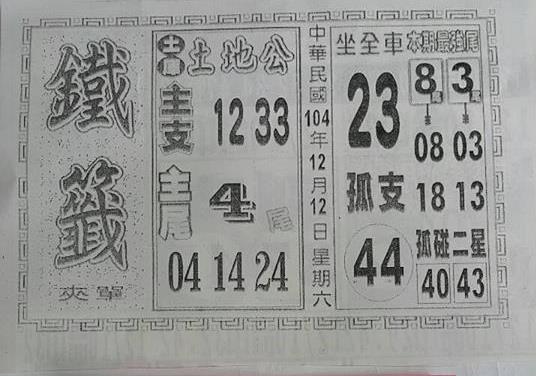 鐵籤
夾單
土地公
主支 12 33
主尾 4 尾
04 14 24
中華民國104年12月12日星期六
坐全車
23
孤支
44
本期最強尾
8尾 3尾
08 03
18 13
孤碰二星
40 43